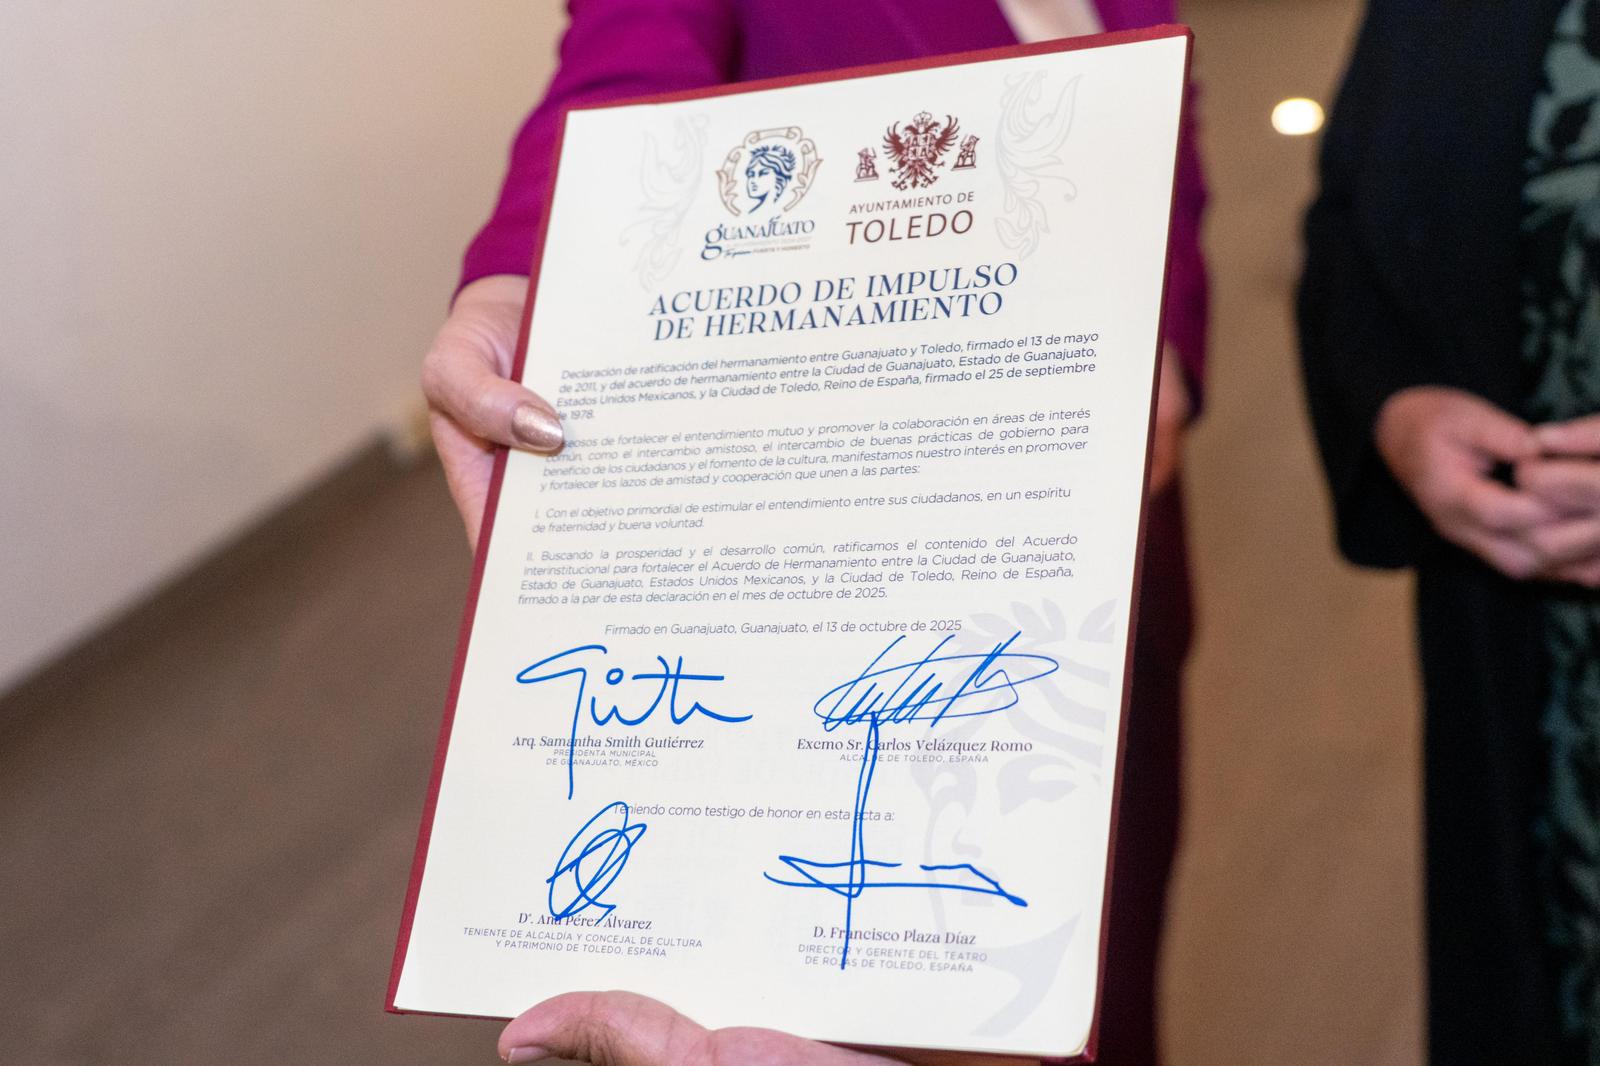 GUANAJUATO
AYUNTAMIENTO DE
TOLEDO
ACUERDO DE IMPULSO
DE HERMANAMIENTO
Declaración de ratificación del hermanamiento entre Guanajuato y Toledo, firmado el 13 de mayo
de 2011, y del acuerdo de hermanamiento entre la Ciudad de Guanajuato, Estado de Guanajuato,
Estados Unidos Mexicanos, y la Ciudad de Toledo, Reino de España, firmado el 25 de septiembre
de 1978.
seosos de fortalecer el entendimiento mutuo y promover la colaboración en áreas de interés
común, como el intercambio amistoso, el intercambio de buenas prácticas de gobierno para
beneficio de los ciudadanos y el fomento de la cultura, manifestamos nuestro interés en promover
y fortalecer los lazos de amistad y cooperación que unen a las partes:
I. Con el objetivo primordial de estimular el entendimiento entre sus ciudadanos, en un espíritu
de fraternidad y buena voluntad.
II. Buscando la prosperidad y el desarrollo común, ratificamos el contenido del Acuerdo
Interinstitucional para fortalecer el Acuerdo de Hermanamiento entre la Ciudad de Guanajuato,
Estado de Guanajuato, Estados Unidos Mexicanos, y la Ciudad de Toledo, Reino de España,
firmado a la par de esta declaración en el mes de octubre de 2025.
Firmado en Guanajuato, Guanajuato, el 13 de octubre de 2025
Arq. Samantha Smith Gutiérrez
PRESIDENTA MUNICIPAL
DE GUANAJUATO, MÉXICO
Excmo Sr. Carlos Velázquez Romo
ALCALDE DE TOLEDO, ESPAÑA
Teniendo como testigo de honor en esta acta a:
Dª. Ana Pérez Álvarez
TENIENTE DE ALCALDÍA Y CONCEJAL DE CULTURA
Y PATRIMONIO DE TOLEDO, ESPAÑA
D. Francisco Plaza Díaz
DIRECTOR Y GERENTE DEL TEATRO
DE ROJAS DE TOLEDO, ESPAÑA